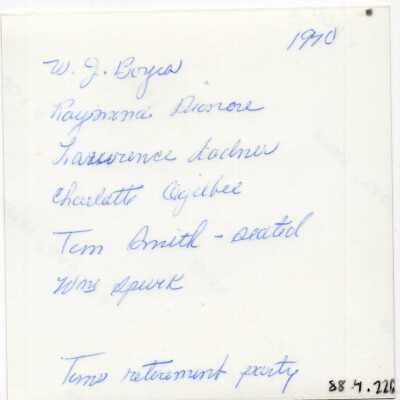 1970
W. J. Boyce
Raymond Dinsore
Lawrence Ladner
Charlotte Ogilbee
Tom Smith - seated
Wm Spurk
Toms retirement party
88.4.226